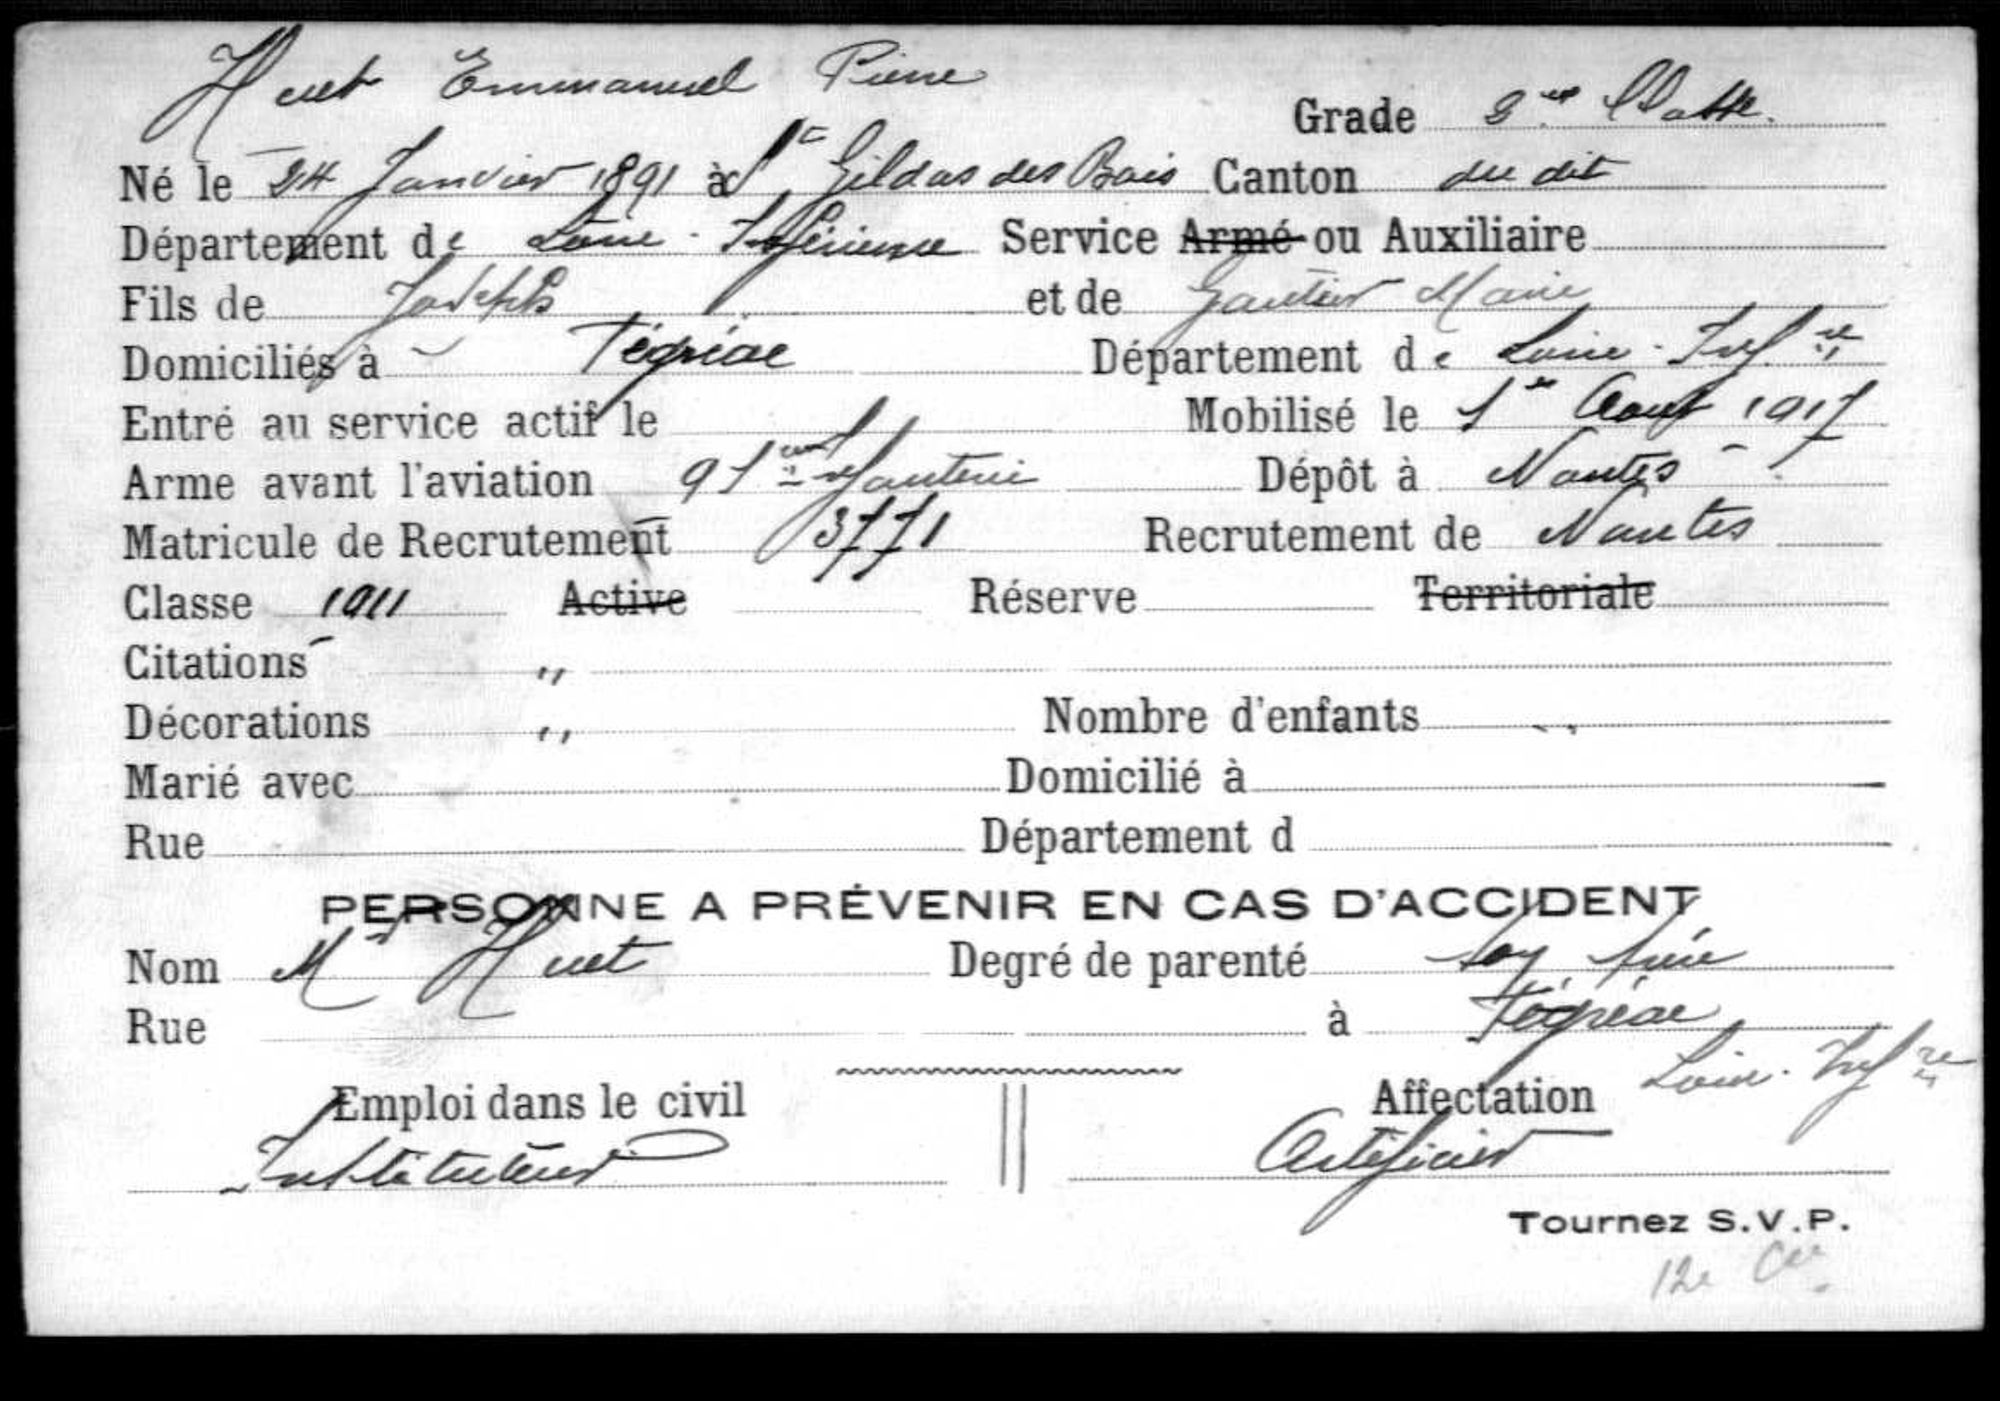 Huet Emmanuel Pierre
Grade 2me Classe.
Né le 24 Janvier 1891 à St Gildas des Bois Canton du dit
Département de Loire-Inférieure Service Armé ou Auxiliaire
Fils de Joseph et de Gautier Marie
Domiciliés à Fégréac Département de Loire-Infre
Entré au service actif le Mobilisé le 1er Aout 1917
Arme avant l'aviation 91 Infanterie Dépôt à Nantes
Matricule de Recrutement 3771 Recrutement de Nantes
Classe 1911 Active Réserve Territoriale
Citations "
Décorations " Nombre d'enfants "
Marié avec Domicilié à
Rue Département d
PERSONNE A PRÉVENIR EN CAS D'ACCIDENT
Nom Mr Huet Degré de parenté son
Rue à Fégréac
Loire-Infre
Emploi dans le civil Affectation
Instituteur Artificier
Tournez S.V.P.
12e Cie